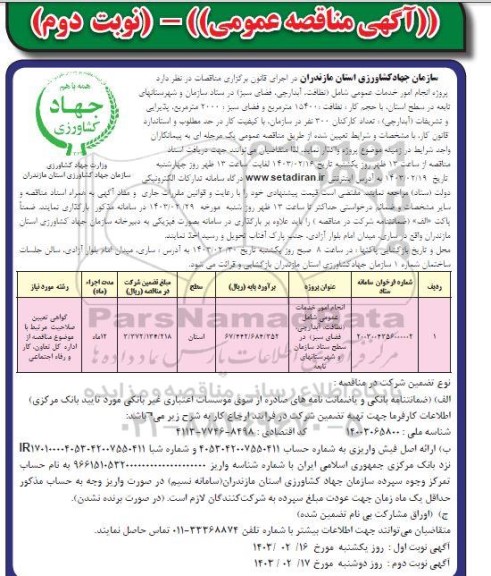 ((آگهی مناقصه عمومی)) – (نوبت دوم)
همه با هم
جهاد
کشاورزی
وزارت جهاد کشاورزی
سازمان جهاد کشاورزی استان مازندران
سازمان جهادکشاورزی استان مازندران در اجرای قانون برگزاری مناقصات در نظر دارد
پروژه انجام امور خدمات عمومی شامل (نظافت، آبدارچی، فضای سبز) در ستاد سازمان و شهرستانهای
تابعه در سطح استان، با حجم کار ، نظافت: ۱۵۴۰۰ مترمربع و فضای سبز : ۲۰۰۰ مترمربع، پذیرایی
و تشریفات (آبدارچی)، تعداد کارکنان ۳۰۰ نفر در سازمان، با کیفیت کار در حد مطلوب و استاندارد
قانون کار، با مشخصات و شرایط تعیین شده از طریق مناقصه عمومی یک مرحله ای به پیمانکاران
واجد شرایط در زمینه موضوع پروژه واگذار نماید. لذا متقاضیان می‌توانند جهت دریافت اسناد
مناقصه از ساعت ۱۳ ظهر روز یکشنبه تاریخ ۱۴۰۳/۰۲/۱۶ لغایت ساعت ۱۳ ظهر روز چهارشنبه
تاریخ ۱۴۰۳/۰۲/۱۹ به آدرس اینترنتی www.setadiran.ir درگاه سامانه تدارکات الکترونیکی
دولت (ستاد) مراجعه نمایند. مقتضی است قیمت پیشنهادی خود را با رعایت و قوانین مقررات جاری و مفاد آگهی به همراه اسناد مناقصه و
سایر مشخصات و ضمائم درخواستی حداکثر تا ساعت ۱۳ ظهر روز شنبه مورخه ۱۴۰۳/۰۲/۲۹ در سامانه مذکور بارگذاری نمایند. ضمناً
پاکت «الف» (ضمانتنامه شرکت در مناقصه) را باید علاوه بر بارگذاری در سامانه بصورت فیزیکی به دبیرخانه سازمان جهاد کشاورزی استان
مازندران واقع در ساری، میدان امام بلوار آزادی، جنب پارک آفتاب تحویل و رسید اخذ نمایند.
محل و تاریخ بازگشایی پاکتها : در ساعت ۸ صبح روز یکشنبه تاریخ ۱۴۰۳/۰۲/۳۰ به آدرس : ساری، میدان امام بلوار آزادی، سالن جلسات
ساختمان شماره ۱ سازمان جهادکشاورزی استان مازندران بازگشایی و قرائت می شود.
ردیف | شماره فراخوان سامانه ستاد | عنوان پروژه | سطح | برآورد پایه (ریال) | مبلغ تضمین شرکت در مناقصه (ریال) | مدت اجراء (ماه) | رشته مورد نیاز
۱ | ۲۰۰۳۰۰۴۳۵۶۰۰۰۰۰۲ | انجام امور خدمات عمومی شامل (نظافت، آبدارچی، فضای سبز) در سطح ستاد سازمان و شهرستانهای تابعه | استان | ۶۷/۴۴۲/۶۸۴/۳۵۲ | ۳/۳۷۲/۱۳۴/۲۱۸ | ۱۲ماه | گواهی تعیین صلاحیت مرتبط با موضوع مناقصه از اداره کل تعاون، کار و رفاه اجتماعی
نوع تضمین شرکت در مناقصه :
الف) (ضمانتنامه بانکی و یاضمانت نامه های صادره از سوی موسسات اعتباری غیر بانکی مورد تایید بانک مرکزی)
اطلاعات کارفرما جهت تهیه تضمین شرکت در فرایند ارجاع کار به شرح زیر می‌باشد:
شناسه ملی : ۱۴۰۰۳۰۶۵۸۰۰ کد اقتصادی : ۸۴۹۸-۷۷۴۶-۴۱۱۳
ب) ارائه اصل فیش واریزی به شماره حساب ۴۰۵۳۰۴۲۰۰۷۵۵۰۴۱۱ و شماره شبا
نزد بانک مرکزی جمهوری اسلامی ایران با شماره شناسه واریز
به نام حساب
تمرکز وجوه سپرده سازمان جهاد کشاورزی استان مازندران(سامانه نسیم) در صورت واریز وجه به حساب مذکور
حداقل یک ماه زمان جهت عودت مبلغ سپرده به شرکت‌کنندگان لازم است. (در صورت برنده نشدن).
ج) (اوراق مشارکت بی نام تضمین شده)
متقاضیان می‌توانند جهت اطلاعات بیشتر با شماره تلفن ۳۳۳۶۸۸۷۴-۰۱۱ تماس حاصل نمایند.
آگهی نوبت اول : روز یکشنبه مورخ ۱۶/ ۰۲/ ۱۴۰۳
آگهی نوبت دوم : روز دوشنبه مورخ ۱۷/ ۰۲ / ۱۴۰۳